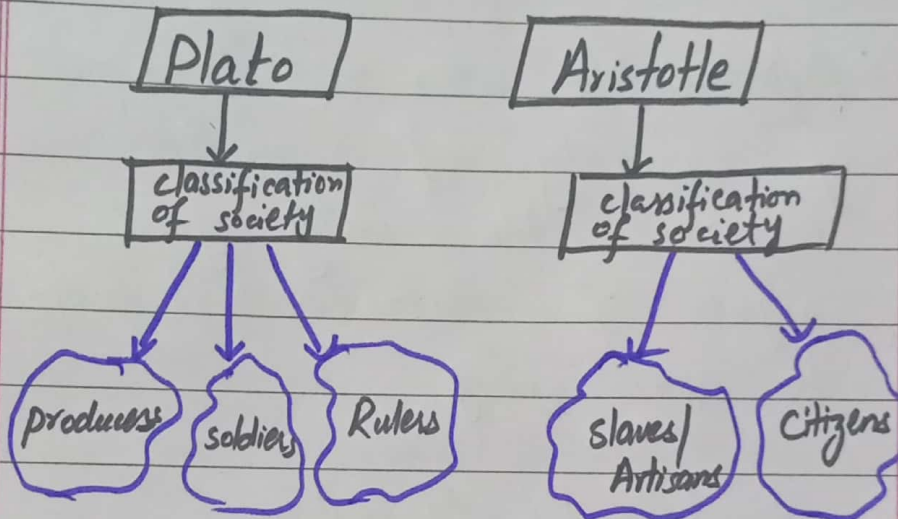 Plato
classification
of society
producers
soldiers
Rulers
Aristotle
classification
of society
slaves/
Artisans
Citizens